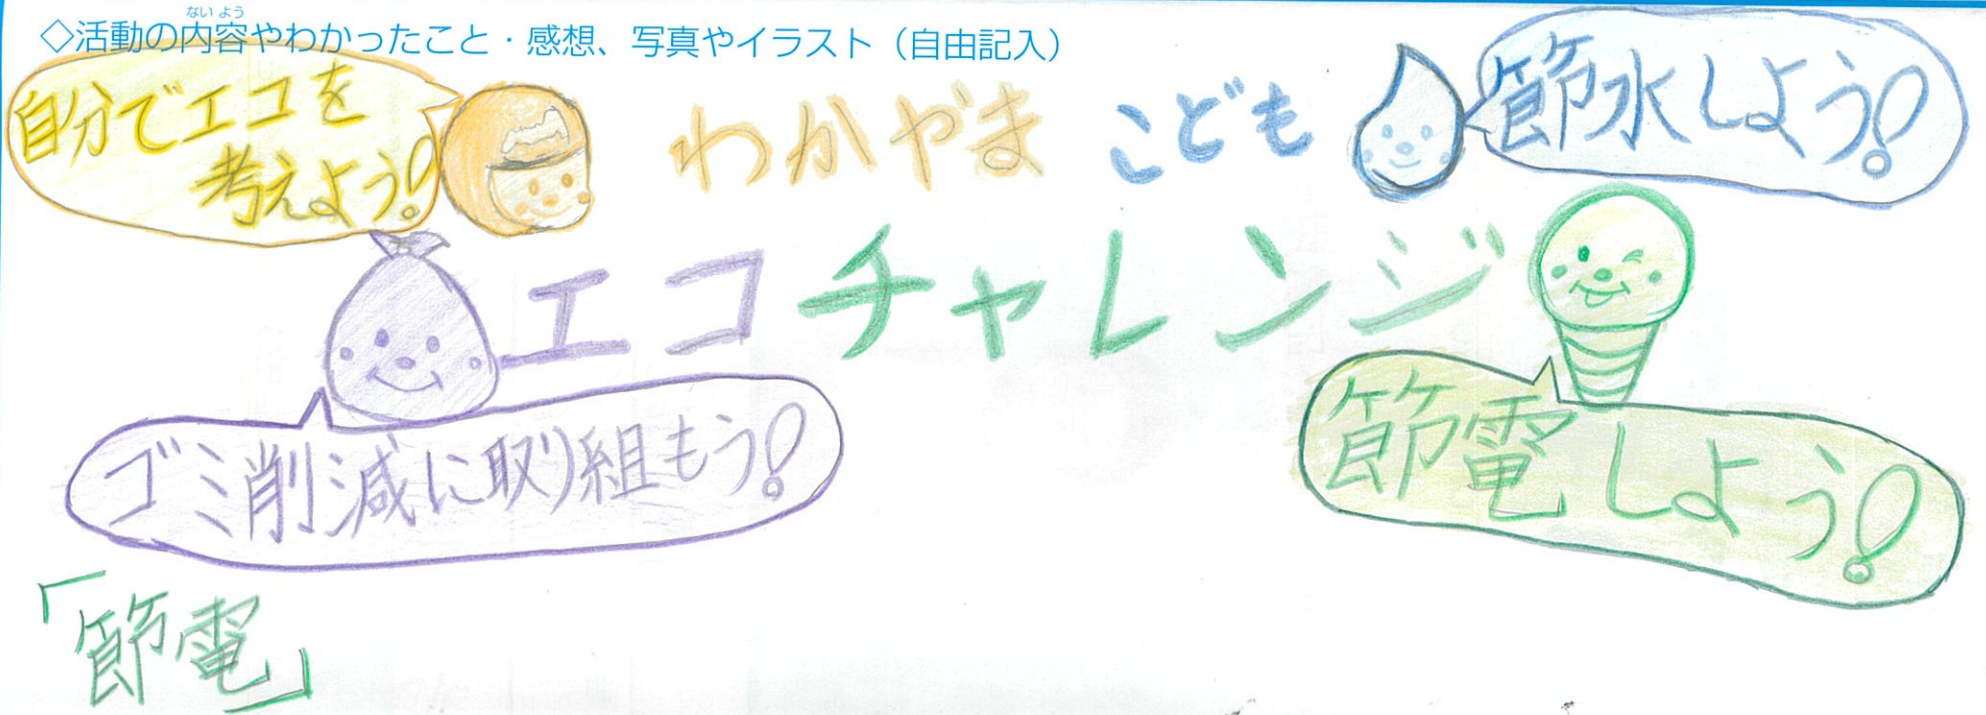 ◇活動の内容やわかったこと・感想、写真やイラスト（自由記入）
ないよう
自分でエコを
考えよう!
わかやま こども
節水しよう!
エコチャレンジ
ゴミ削減に取り組もう!
節電しよう!
「節電」